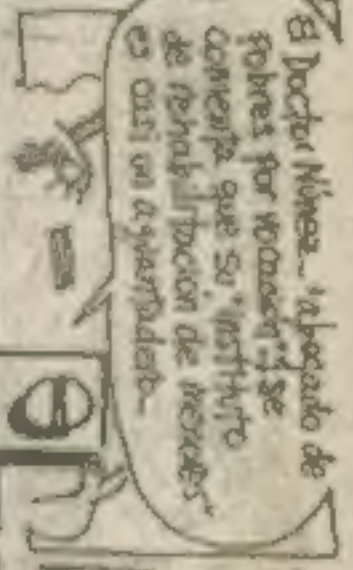 El Doctor Núnez... "abocado de
Pobres por vocación", se
comenta que su "instituto
de rehabilitación de menores"
es casi un aguantadero...